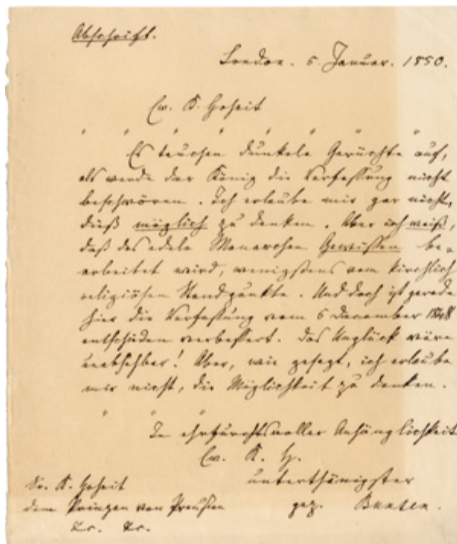 Abschrift.
London. 5. Januar. 1850.
Ew. K. Hoheit
" " " " " " "
Es tauchen dunkele Gerüchte auf,
als werde der König die Verfassung nicht
beschwören. Ich erlaube mir gar nicht,
dieß möglich zu denken. Aber ich weiß,
daß des edele Monarchen Gewissen be-
arbeitet wird, wenigstens vom kirchlich
religiösen Standpunkte. Und doch ist gerade
hier die Verfassung vom 5 December 1848
entschieden verbessert. Das Unglück wäre
unabsehbar! Aber, wie gesagt, ich erlaube
mir nicht, die Möglichkeit zu denken.
" " "
In ehrfurchtsvoller Anhänglichkeit
Ew. K. H.
unterthänigster
gez. Bunsen.
Sr. K. Hoheit
dem Prinzen von Preußen
&c. &c.